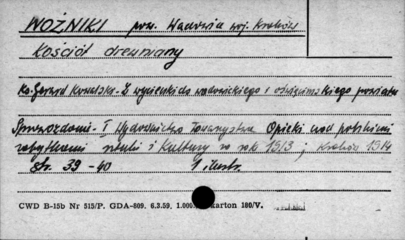 WOŹNIKI pow. Wadowice woj. Kraków
Kościół drewniany
Ks. Gerard Kowalski - Z wycieczki do wadowickiego i oświęcimskiego powiatu
Sprawozdanie I Wydawnictwo Towarzystwa Opieki nad polskimi
zabytkami sztuki i kultury za rok 1913 ; Kraków 1914
str. 39-40 1 ilustr.
CWD B-15b Nr 515/P. GDA-809. 6.3.59, 1.000. karton 180/V.